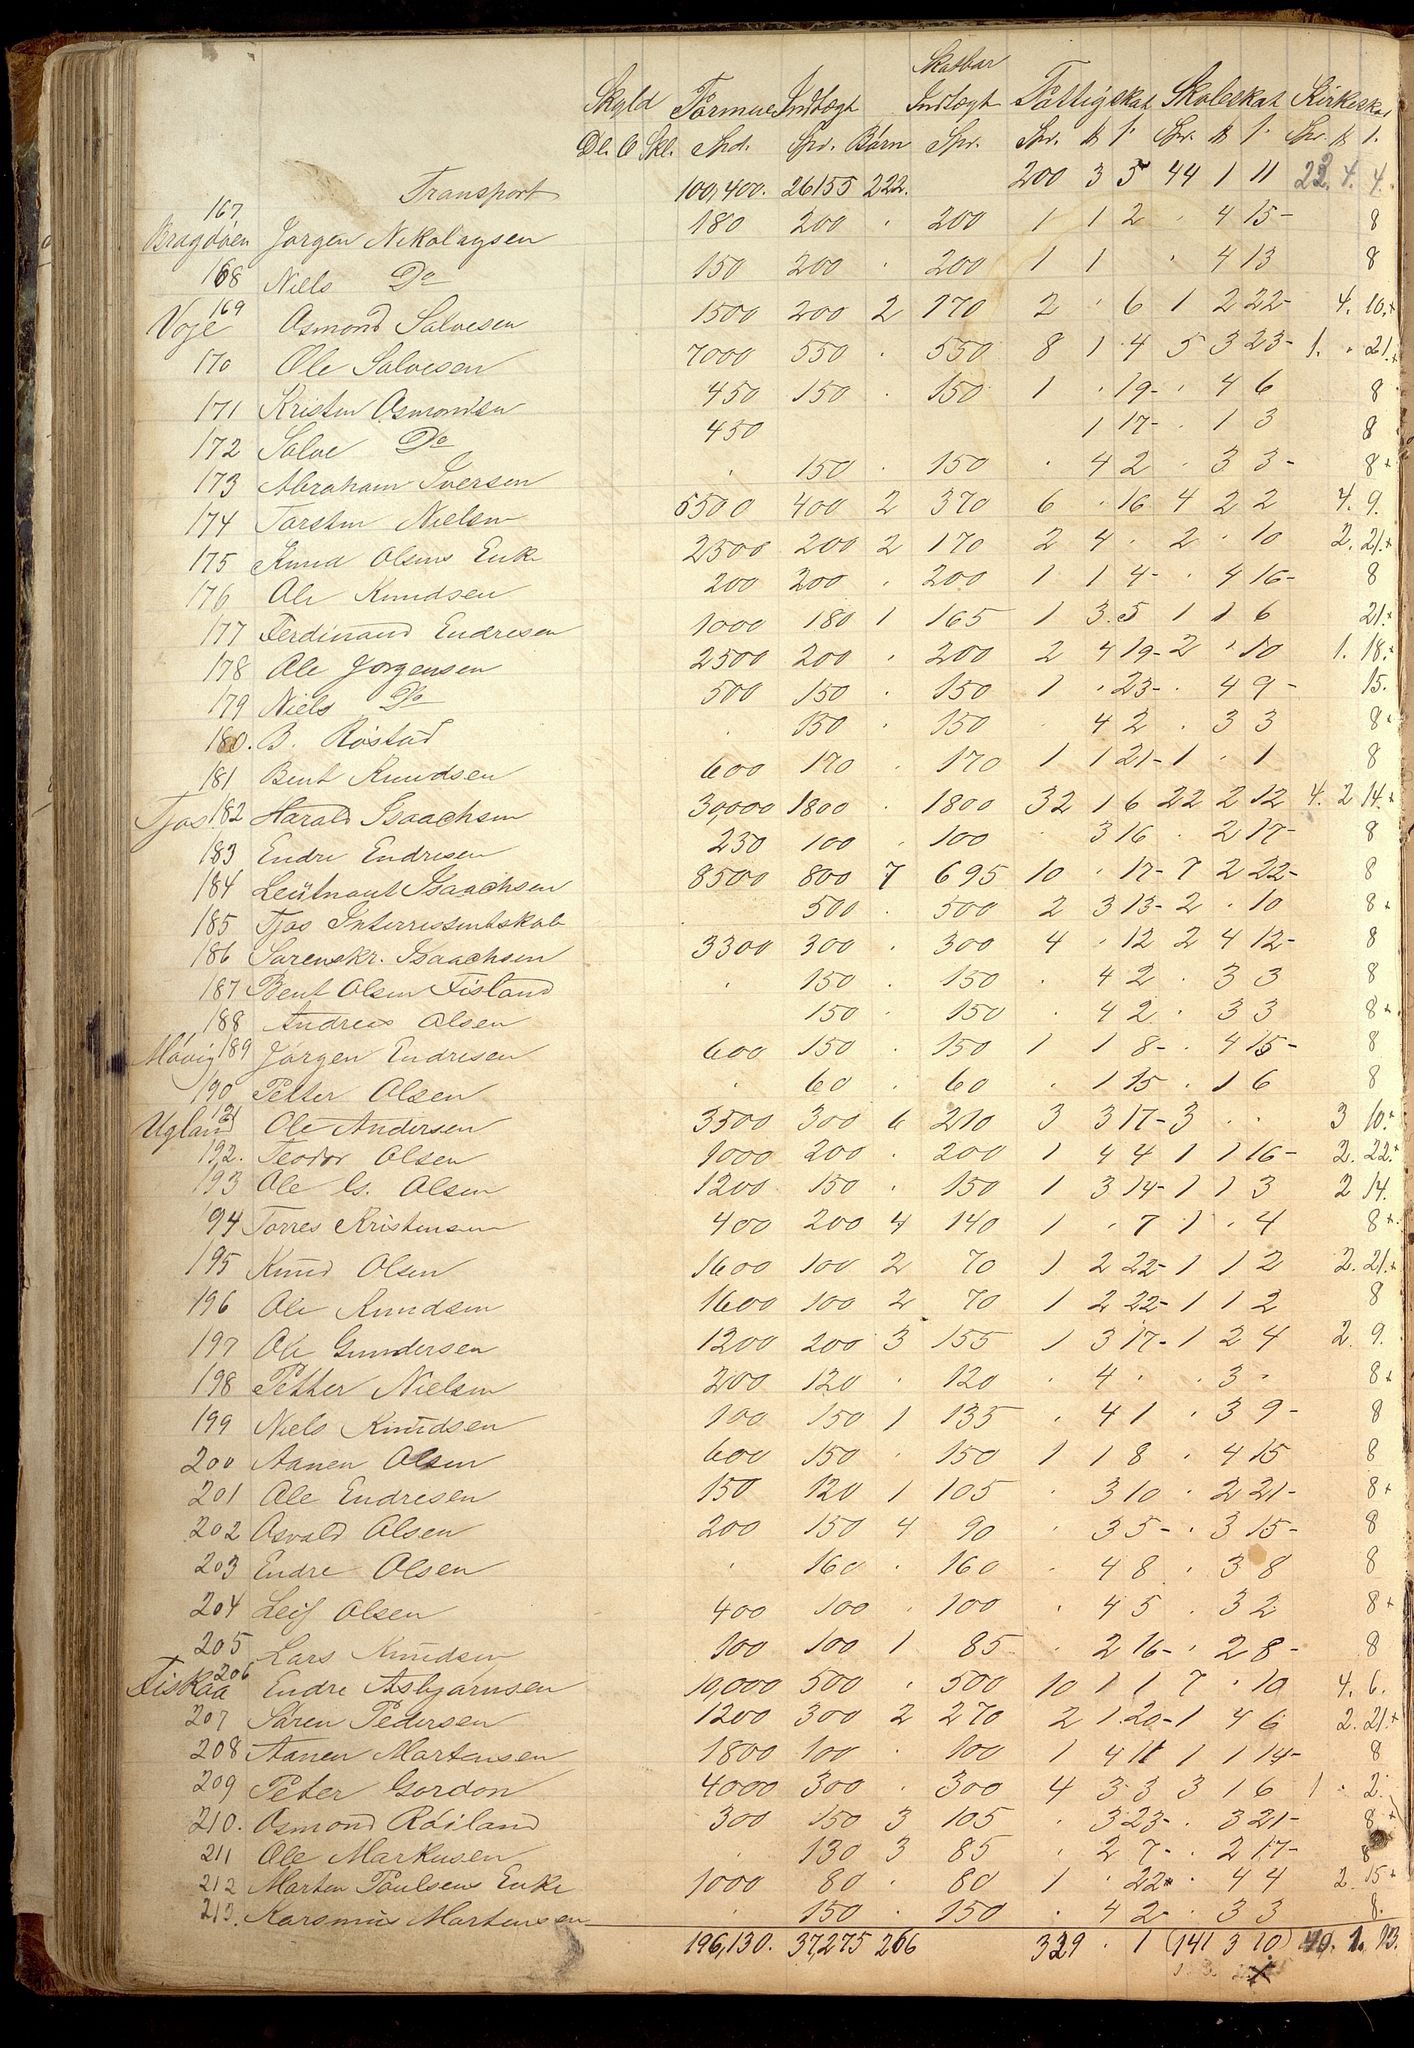 Skatbar
Skyld Formue Indtægt Indtægt Fattigskat Skoleskat Kirkeskat
Dl. O Skl. Spd. Spr. Børn Spr. Spr. ℔ s. Spr. ℔ s. Spr. ℔ s.
Transport 100,400. 26155 222. 200 3 5 44 1 11 22. 4. 4.
167
Bragdøen Jørgen Nikolaysen 180 200 . 200 1 1 2 . 4 15- 8
168 Niels Do 150 200 . 200 1 1 . 4 13 8
169
Voje Osmond Salvesen 1500 200 2 170 2 . 6 1 2 22- 4. 10.+
170 Ole Salvesen 7000 550 . 550 8 1 4 5 3 23- 1. . 21.+
171 Kristen Osmondsen 450 150 . 150 1 . 19- . 4 6 8
172 Salve Do 450 1 17- . 1 3 8
173 Abraham Iversen . 150 . 150 . 4 2 . 3 3- 8+
174 Torsten Nielsen 5500 400 2 370 6 . 16 4 2 2 4. 9.
175 Knud Olsens Enke 2500 200 2 170 2 4 . 2 . 10 2. 21.+
176 Ole Knudsen 200 200 . 200 1 1 4- . 4 16- 8
177 Ferdinand Endresen 1000 180 1 165 1 3. 5 1 1 6 21.+
178 Ole Jørgensen 2500 200 . 200 2 4 19- 2 . 10 1. 18.+
179 Niels Do 500 150 . 150 1 . 23- . 4 9- 15.
180. B. Røstad . 150 . 150 . 4 2 . 3 3 8+
181 Bent Knudsen 600 170 . 170 1 1 21- 1 . 1 8
Tjos 182 Harald Isaachsen 30,000 1800 . 1800 32 1 6 22 2 12 4. 2 14.+
183 Endre Endresen 230 100 . 100 . 3 16 . 2 17- 8
184 Leütnant Isaachsen 8500 800 7 695 10 . 17- 7 2 22- 8
185 Tjos Interressentskab . 500 . 500 2 3 13- 2 . 10 8+
186 Sørenskr. Isaachsen 3300 300 . 300 4 . 12 2 4 12- 8
187 Bent Olsen Fisland . 150 . 150 . 4 2 . 3 3 8
188 Andreas Olsen 150 . 150 . 4 2 . 3 3 8+
Møvig 189 Jørgen Endresen 600 150 . 150 1 1 8- . 4 15- 8
190 Petter Olsen . 60 . 60 . 1 15 . 1 6 8
191
Ugland Ole Andersen 3500 300 6 210 3 3 17- 3 . . 3 10.+
192. Teodor Olsen 1000 200 . 200 1 4 4 1 1 16- 2. 22.+
193 Ole G. Olsen 1200 150 . 150 1 3 14- 1 1 3 2 14.
194 Torres Kristensen 400 200 4 140 1 . 7 1 . 4 8+
195 Knud Olsen 1600 100 2 70 1 2 22- 1 1 2 2. 21.+
196 Ole Knudsen 1600 100 2 70 1 2 22- 1 1 2 8
197 Ole Gundersen 1200 200 3 155 1 3 17- 1 2 4 2. 9.
198 Petter Nielsen 200 120 . 120 . 4 . . 3 . 8+
199 Niels Knudsen 100 150 1 135 . 4 1 . 3 9- 8
200 Aanen Olsen 600 150 . 150 1 1 8 . 4 15 8
201 Ole Endresen 150 120 1 105 . 3 10 . 2 21- 8+
202 Osvald Olsen 200 150 4 90 . 3 5- . 3 15- 8
203 Endre Olsen . 160 . 160 . 4 8 . 3 8 8
204 Leif Olsen 400 100 . 100 . 4 5 . 3 2 8+
205 Lars Knudsen 100 100 1 85 . 2 16- . 2 8- 8
206
Fiskaa Endre Asbjørnsen 10,000 500 . 500 10 1 1 7 . 10 4. 6.
207 Søren Pedersen 1200 300 2 270 2 1. 20- 1 4 6 2. 21.+
208 Aanen Mortensen 1800 100 . 100 1 4 11 1 1 14- 8
209 Peter Gordon 4000 300 . 300 4 3 3 3 1 6 1 . 2.
210. Osmond Røiland 300 150 3 105 . 3 23- . 3 21- 8+
211 Ole Markusen . 130 3 85 . 2 7- . 2 17- 8
212 Morten Poulsens Enke 1000 80 . 80 1 . 22- . 4 4 2. 15+
213. Karsmus Mortensen . 150 . 150 . 4 2- . 3 3 8.
196,130. 37,275 266 329 . 1 (141 3 10) 40. 1. 13.